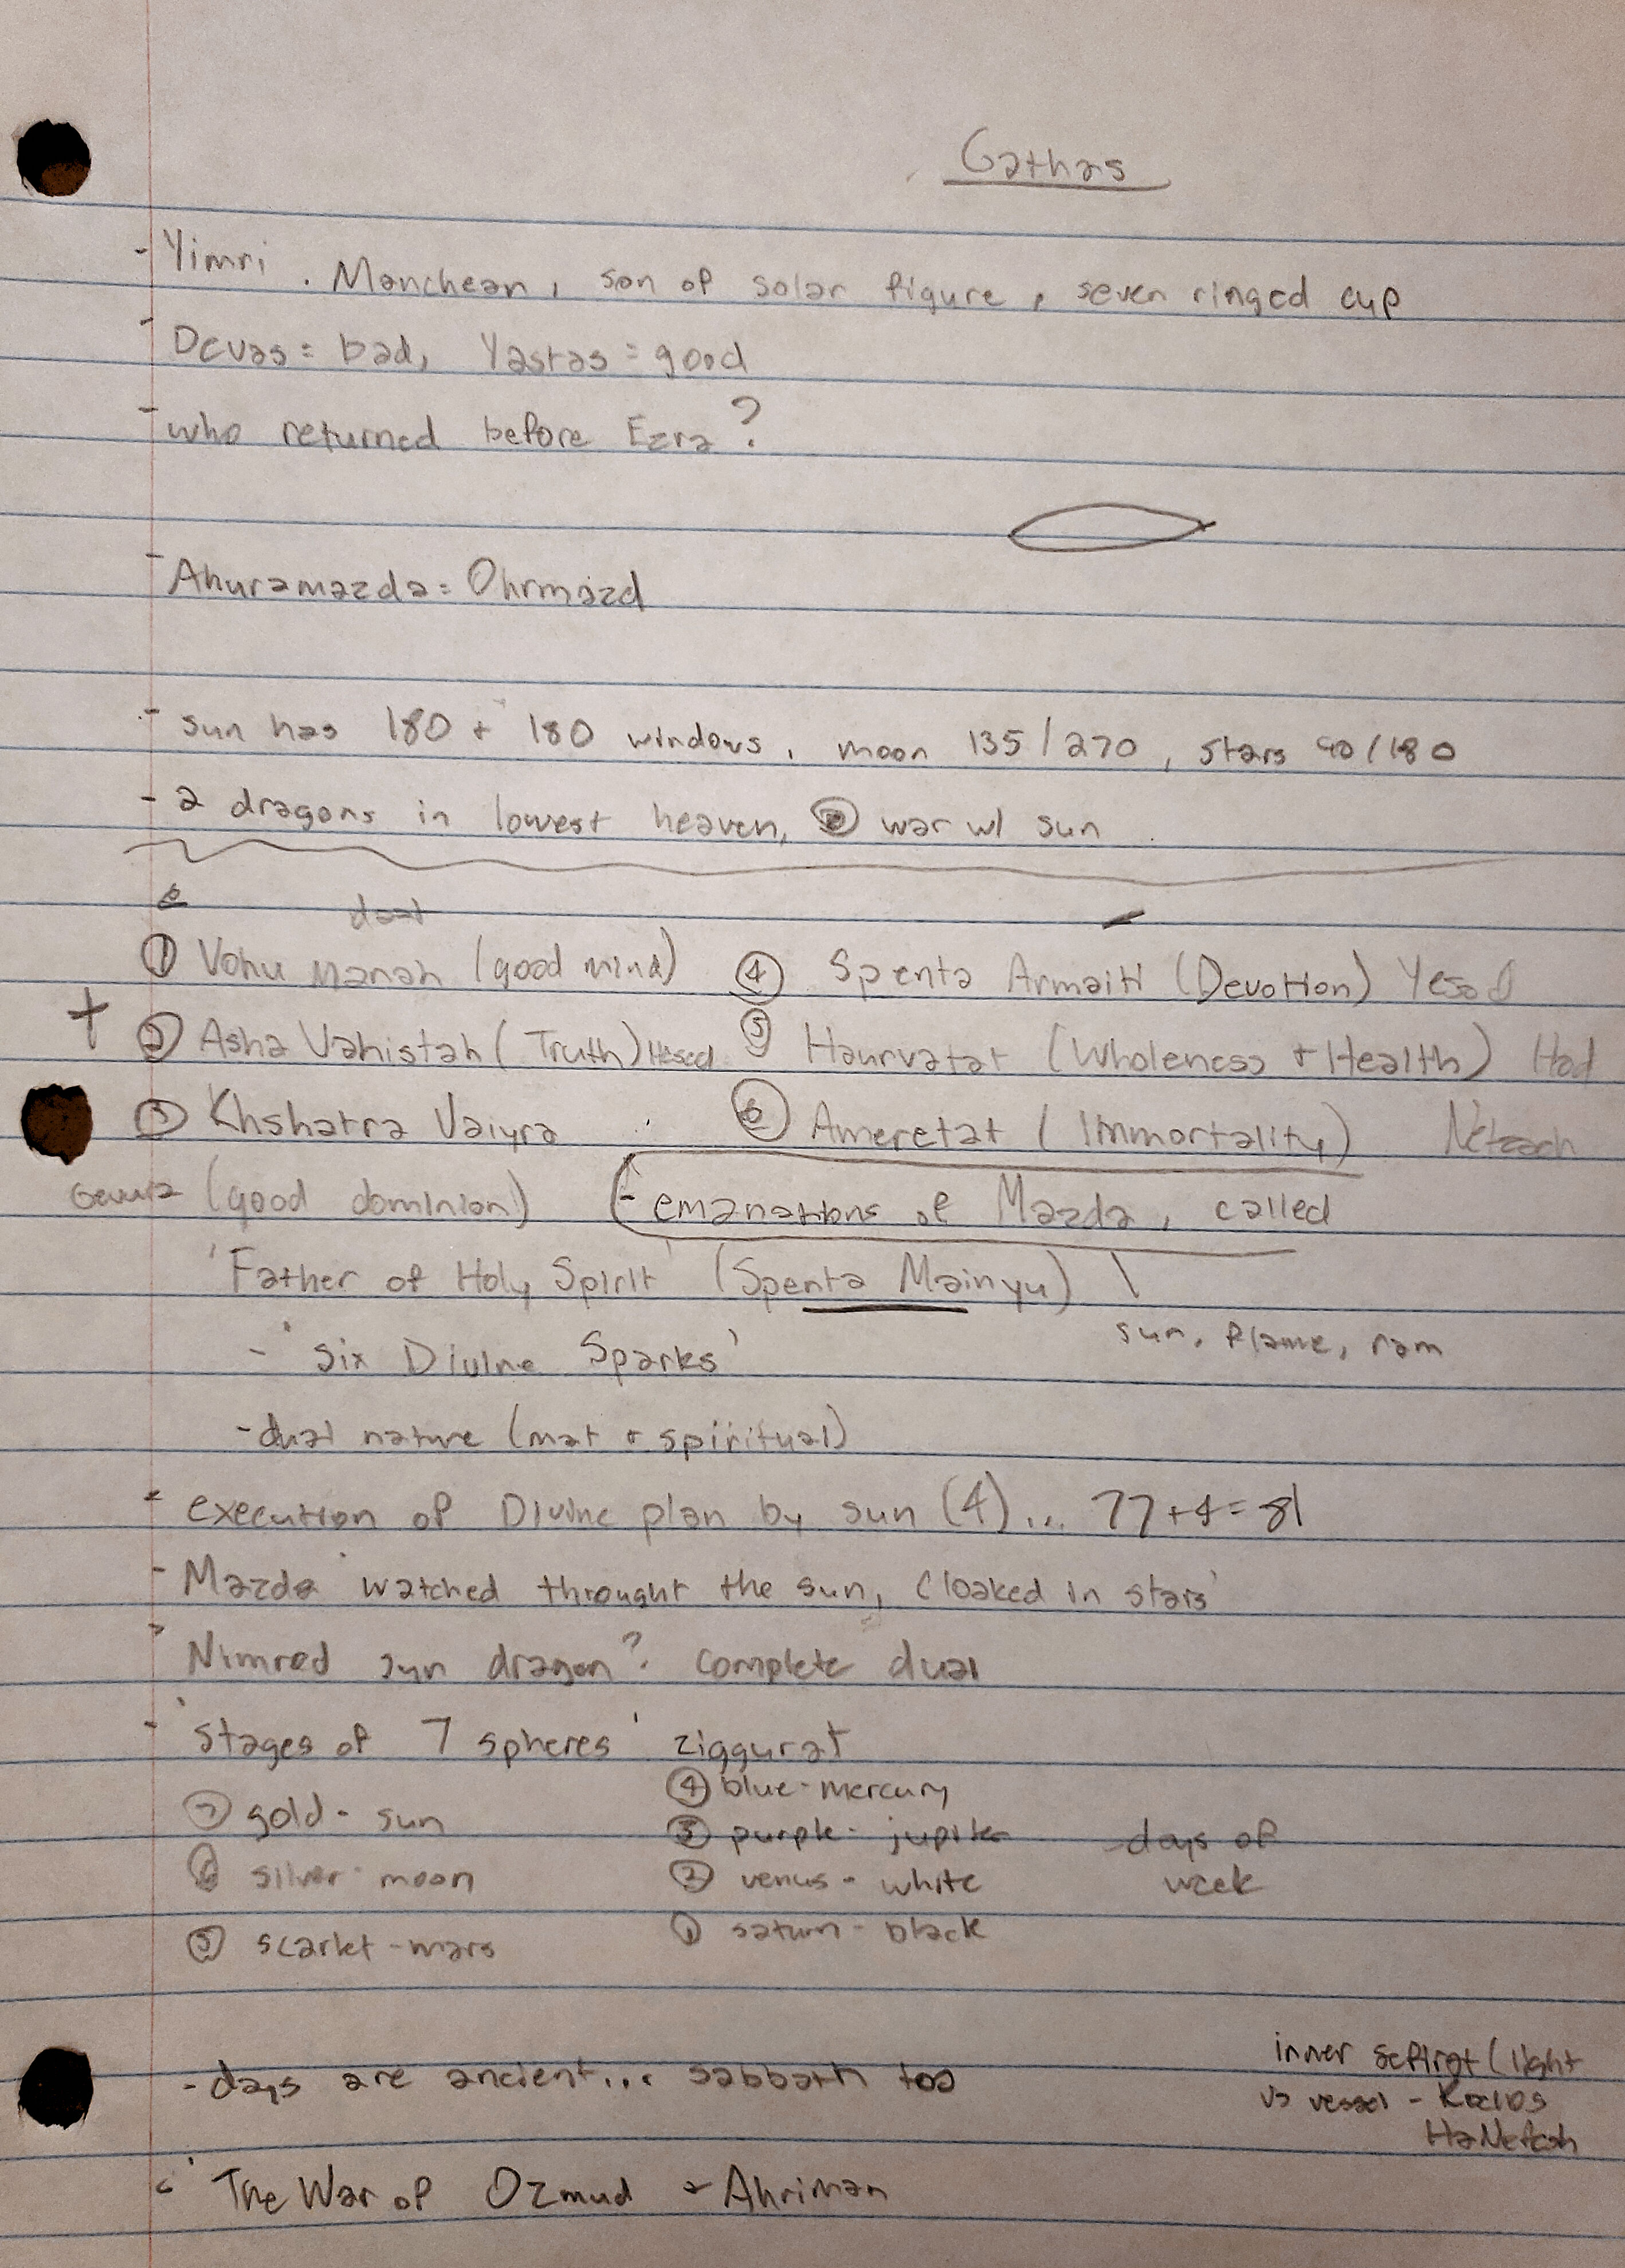 Gathas
- Yimri . Manchean, son of solar figure, seven ringed cup
- Devas = bad, Yastas = good
- who returned before Ezra?
- Ahuramazda = Ohrmazd
- sun has 180 + 180 windows, moon 135/270, stars 90/180
- 2 dragons in lowest heaven, war w/ sun
dual
① Vohu Manah (good mind) ④ Spenta Armaiti (Devotion) Yesod
+ ② Asha Vahistah (Truth) Hesed ⑤ Haurvatat (Wholeness + Health) Hod
③ Khshatra Vaiyra ⑥ Ameretat (Immortality) Netzach
(good dominion) - emanations of Mazda, called
'Father of Holy Spirit' (Spenta Mainyu)
sun, flame, ram
- 'Six Divine Sparks'
- dual nature (mat + spiritual)
- execution of Divine plan by sun (4)... 77+4=81
- Mazda 'watched throught the sun, cloaked in stars'
- Nimrod sun dragon? complete dual
- 'stages of 7 spheres' ziggurat
④ blue - mercury
⑦ gold - sun
③ purple - jupiter - days of
⑥ silver - moon ② venus - white week
⑤ scarlet - mars ① saturn - black
- days are ancient... sabbath too
inner sefirot (light
vs vessel -
HaNefesh
- 'The War of Ozmud + Ahriman